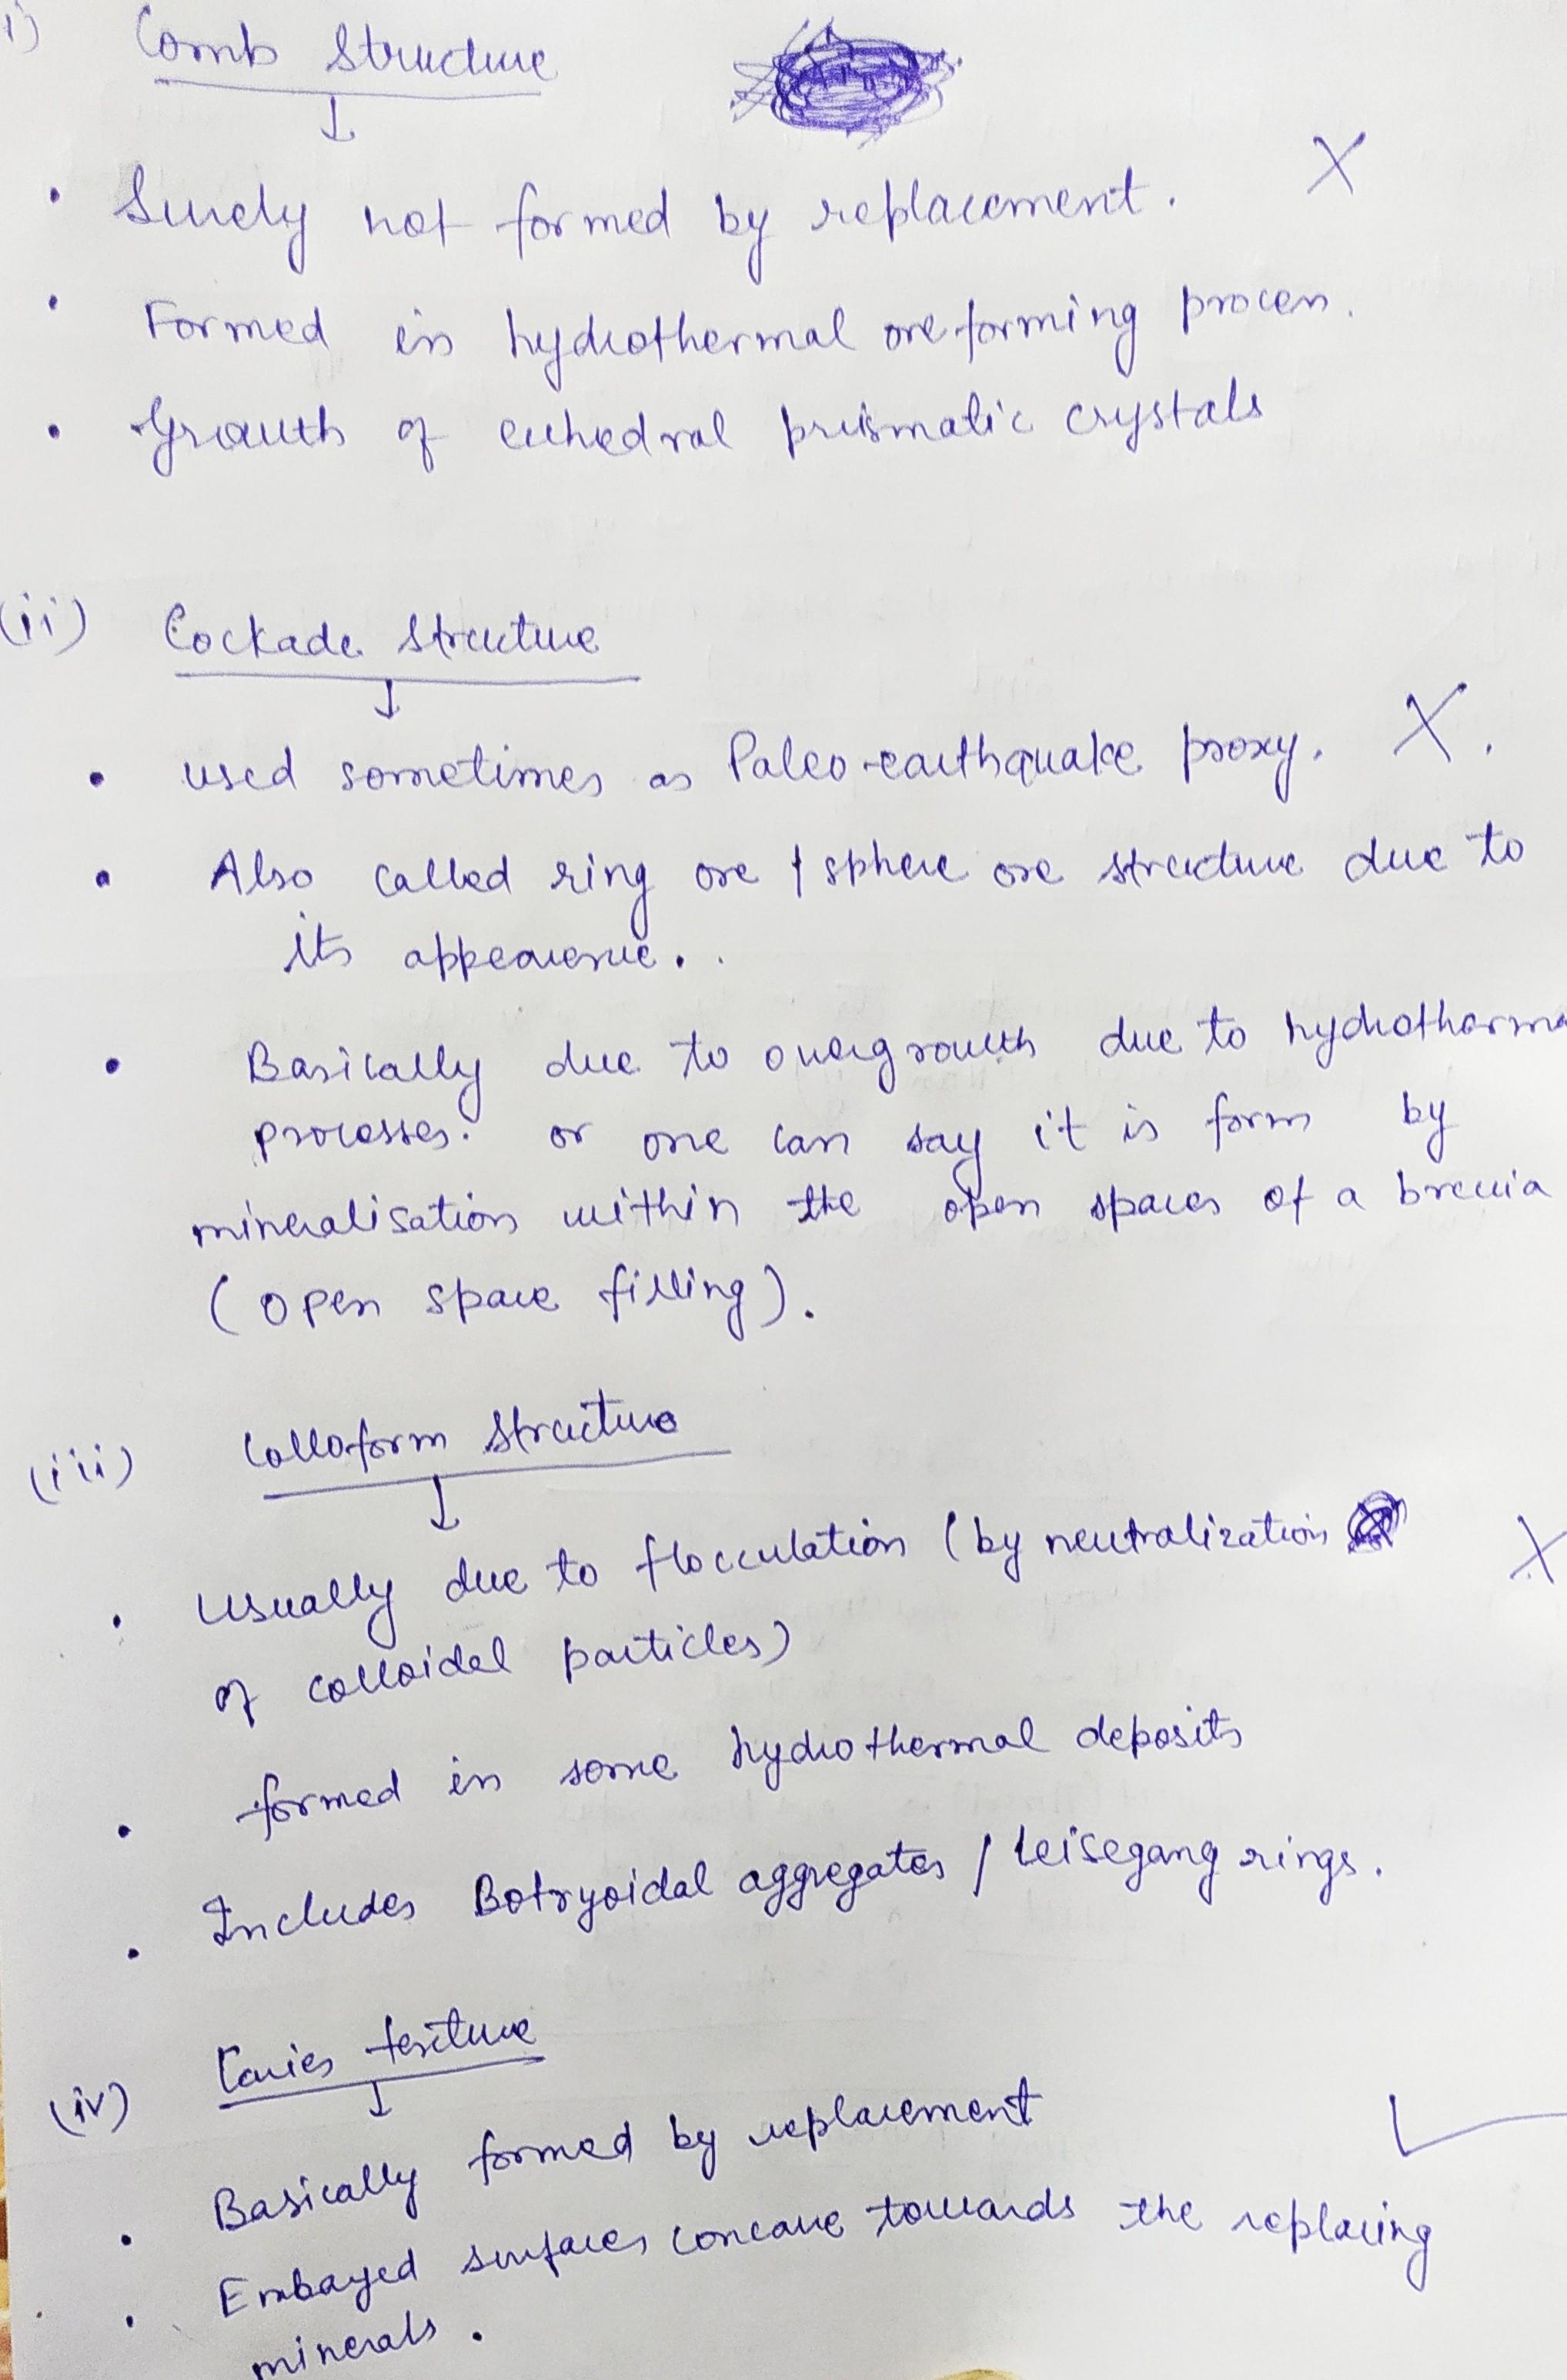 i) Comb Structure
• Surely not formed by replacement. X
• Formed in hydrothermal ore forming process.
• Growth of euhedral prismatic crystals
(ii) Cockade structure
• used sometimes as Paleo-earthquake proxy. X.
• Also called ring ore / sphere ore structure due to
its appearence.
• Basically due to overgrowth due to hydrotherma
processes. or one can say it is form by
mineralisation within the open spaces of a breccia
(open space filling).
(iii) Colloform Structure
• Usually due to flocculation (by neutralization X
of colloidal particles)
• formed in some hydrothermal deposits
• Includes Botryoidal aggregates / Leisegang rings.
(iv) Caries texture
• Basically formed by replacement
• Embayed surfaces concave towards the replacing
minerals.